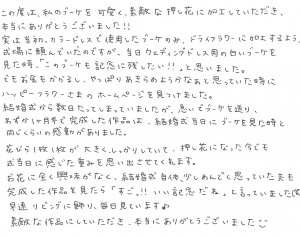 この度は、私のブーケを可愛く、素敵な押し花に加工していただき、
本当にありがとうございました!!
実は当初、カラードレスで使用したブーケのみ、ドライフラワーに加工するよう、
式場に頼んでいたのですが、当日ウェディングドレス用の白いブーケを
見た時、"このブーケを記念に残したい!!"と思いました。
でもお金もかかるし、やっぱりあきらめようかなぁと思っていた時に
ハッピーフラワーさまのホームページを見つけました。
結婚式から数日たってしまっていましたが、思いきってブーケを送り、
わずか1ヶ月半で完成した作品は、結婚式当日にブーケを見た時と
同じくらいの感動がありました。
花びら1枚1枚が大きく、しっかりしていて、押し花になった今でも
式当日に感じた重みを思い出させてくれます。
お花に全く興味がなく、結婚式自体、少しめんどくさ思っていた夫も
完成した作品を見たら「すご。!! いい記念だね。」と言っていました
早速リビングに飾り、毎日見ています♪
素敵な作品にしていただき、本当にありがとうございました